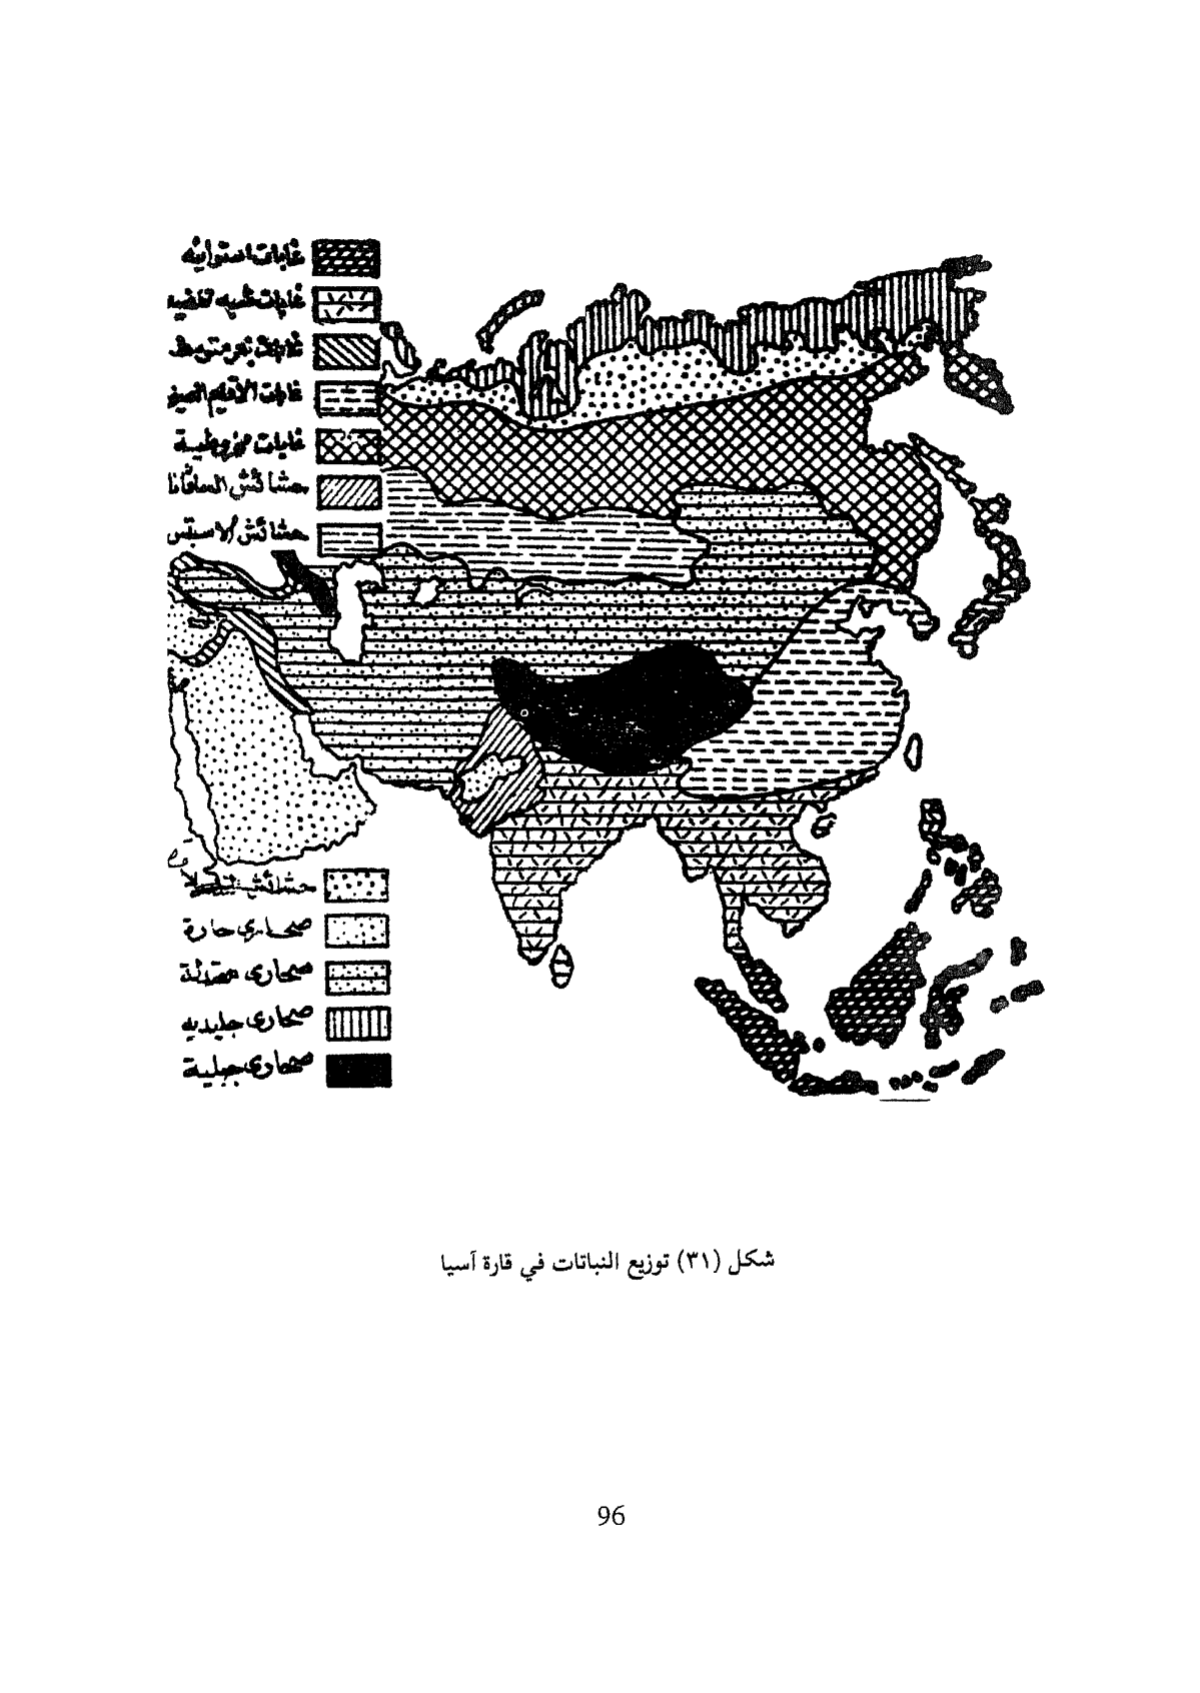 غابات استوائيه
غابات شبه
غابات بحر متوسط
غابات الأقليم الصينى
غابات مخروطية
حشائش السافانا
حشائش الاستبس
حشائش
صحارى حارة
صحارى معتدلة
صحارى جليديه
صحارى جبلية
شكل (٣١) توزيع النباتات في قارة آسيا
96